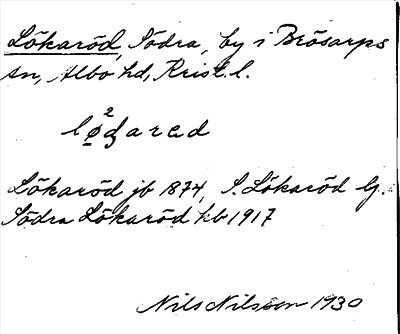 Lökaröd, Södra, by i Brösarps
sn, Albo hd, Krist. l.
lø²g̨arɛd
Lökaröd jb 1874, S. Lökaröd Gf.
Södra Lökaröd kb 1917
Nils Nilsson 1930